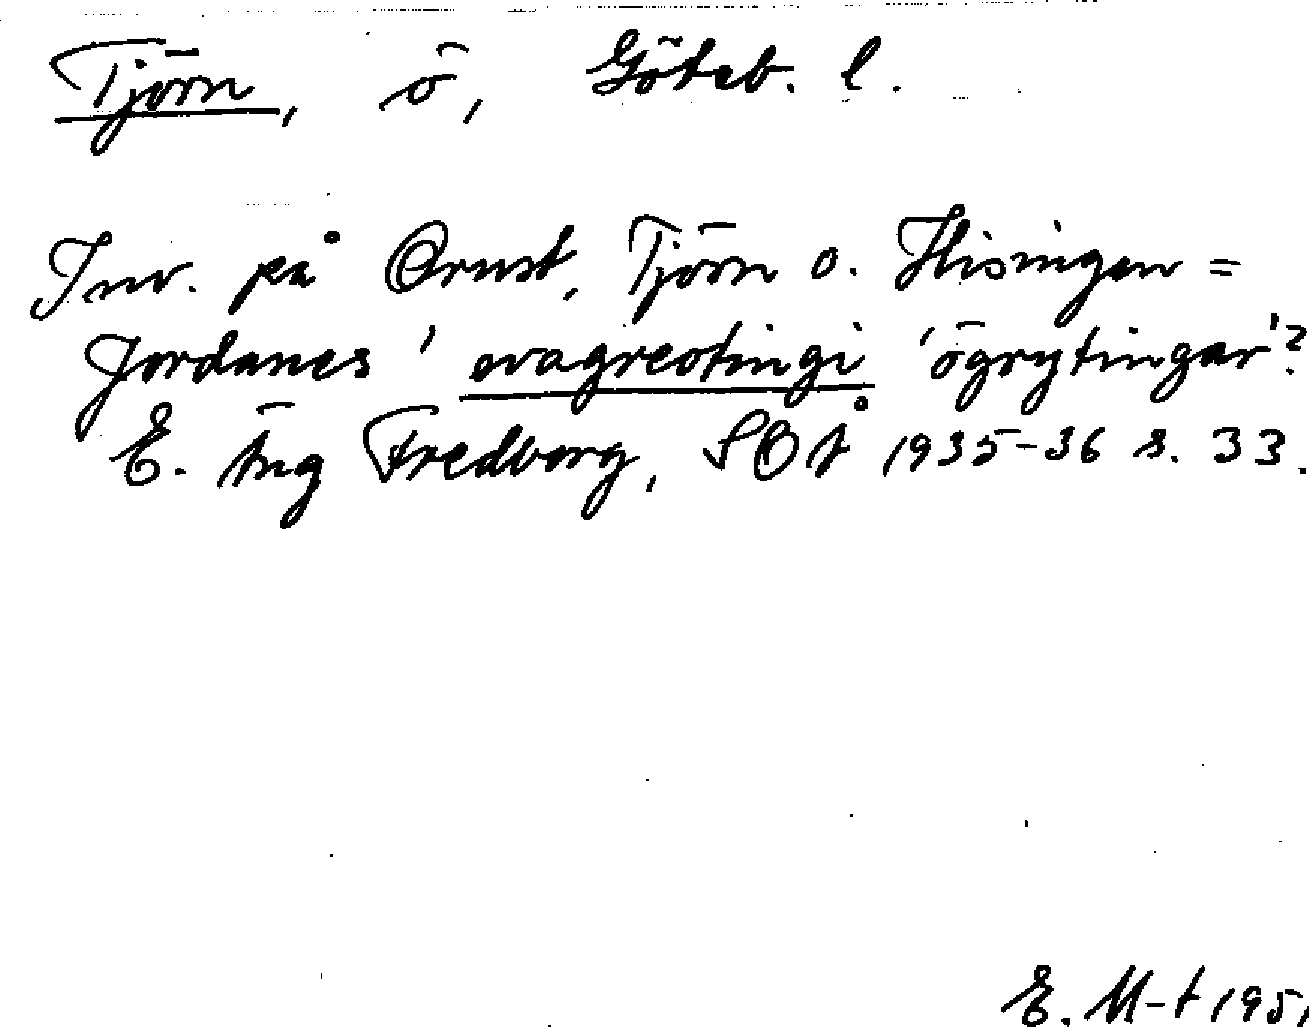 Tjörn, ö, Göteb. l.
Inv. på Orust, Tjörn o. Hisingen =
Jordanes' ovagreotingi 'ögrytingar'?
E. Äng Fredborg, SOÅ 1935-36 s. 33.
E. M-t 1951